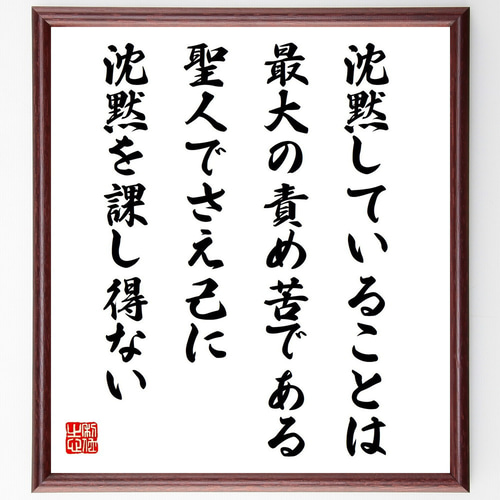 沈黙していることは
最大の責め苦である
聖人でさえ己に
沈黙を課し得ない